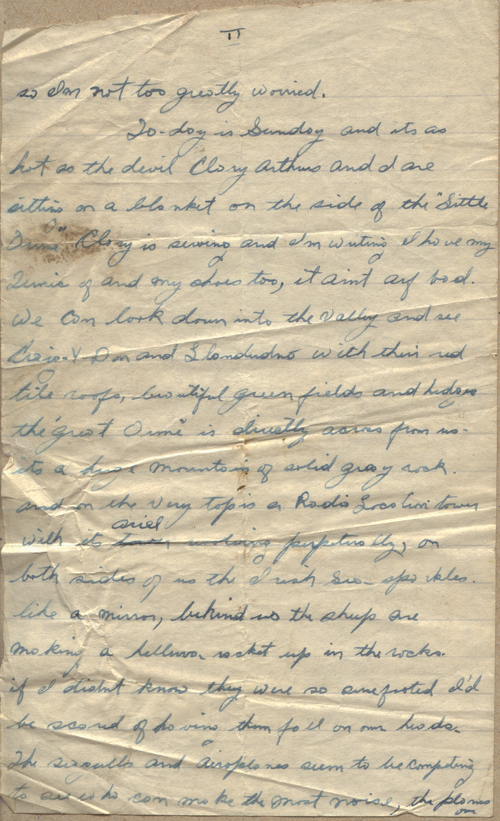 II
so I'm not too greatly worried.
To-day is Sunday and its as
hot as the devil Clory Arthurs and I are
sitting on a blanket on the side of the "Little
Orme" Clory is sewing and I'm writing I have my
Tunic of and my shoes too, it aint arf bad.
We can look down into the Valley and see
Craig-Y-Don and Llandudno with their red
tile roofs, beautiful green fields and hedges
the "great Orme" is directly across from us.
its a huge mountain of solid gray rock.
and on the very top is a Radio Location tower
ariel
with its perpetually, on
both sides of us the Irish Sea sparkles.
like a mirror, behind us the sheep are
making a helluva racket up in the rocks.
if I didnt know they were so surefooted I'd
be scared of having them fall on our heads.
The seagulls and airoplanes seem to be competing
to see who can make the most noise, the planes